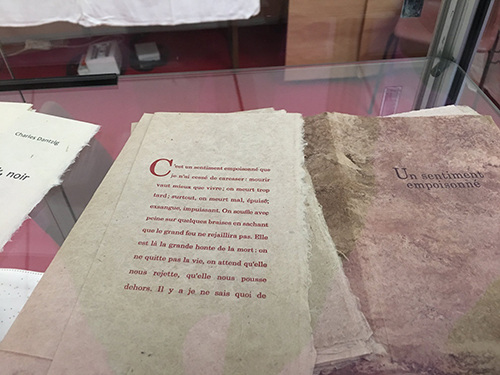 Charles Dantzig
noir
C'est un sentiment empoisonné que
je n'ai cessé de caresser : mourir
vaut mieux que vivre; on meurt trop
tard; surtout, on meurt mal, épuisé,
exsangue, impuissant. On souffle avec
peine sur quelques braises en sachant
que le grand feu ne rejaillira pas. Elle
est là la grande honte de la mort : on
ne quitte pas la vie, on attend qu'elle
nous rejette, qu'elle nous pousse
dehors. Il y a je ne sais quoi de
Un sentiment
empoisonné